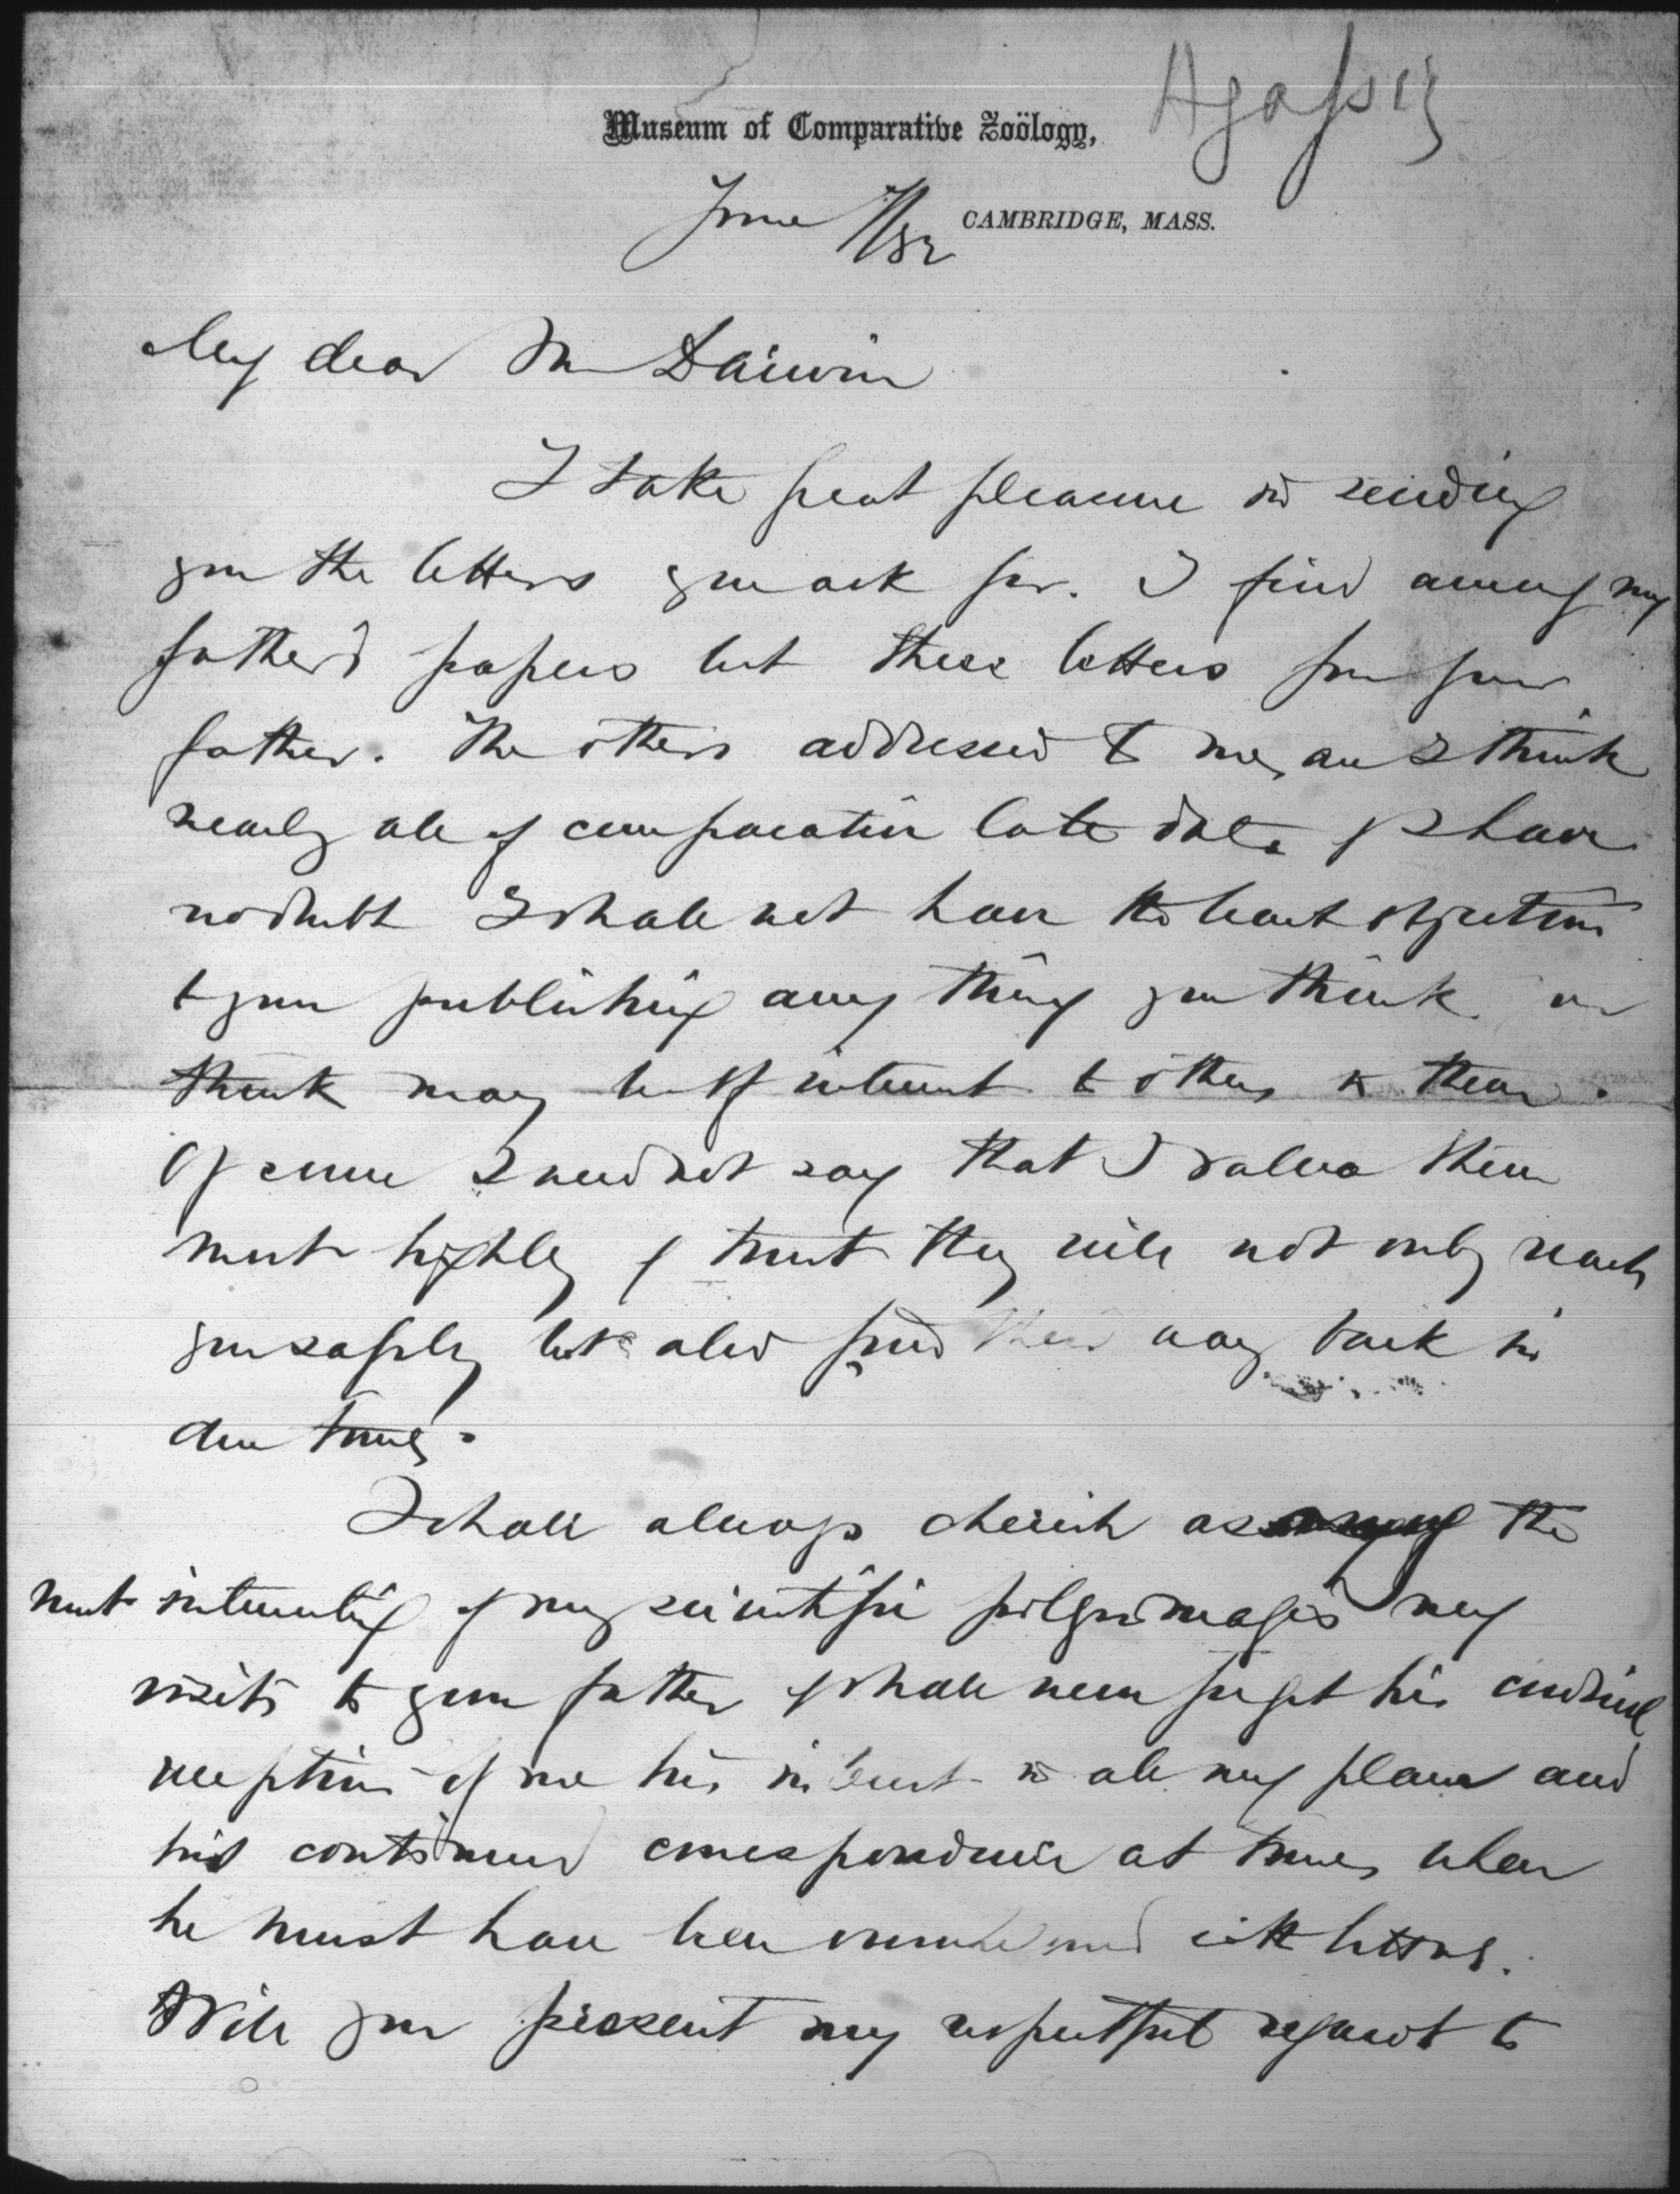 Agassiz
Museum of Comparative Zoölogy,
June /82 CAMBRIDGE, MASS.
My dear Mr Darwin
I take great pleasure in sending
you the letters you ask for. I find among my
father's papers but these letters from your
father. The others addressed to me, are I think
nearly all of comparative late date & I have
no doubt I shall not have the least objection
to your publishing any thing you think or
think may be of interest to others
Of course I need not say that I value them
most highly & trust they will not only reach
you safely but also find their way back in
due time.
I shall always cherish as the
most interesting of my scientific pilgrimages my
visits to your father & shall never forget his cordial
reception of me his interest in all my plans and
his continued correspondence at times when
he must have been with letters.
Will you present my respectful regards to